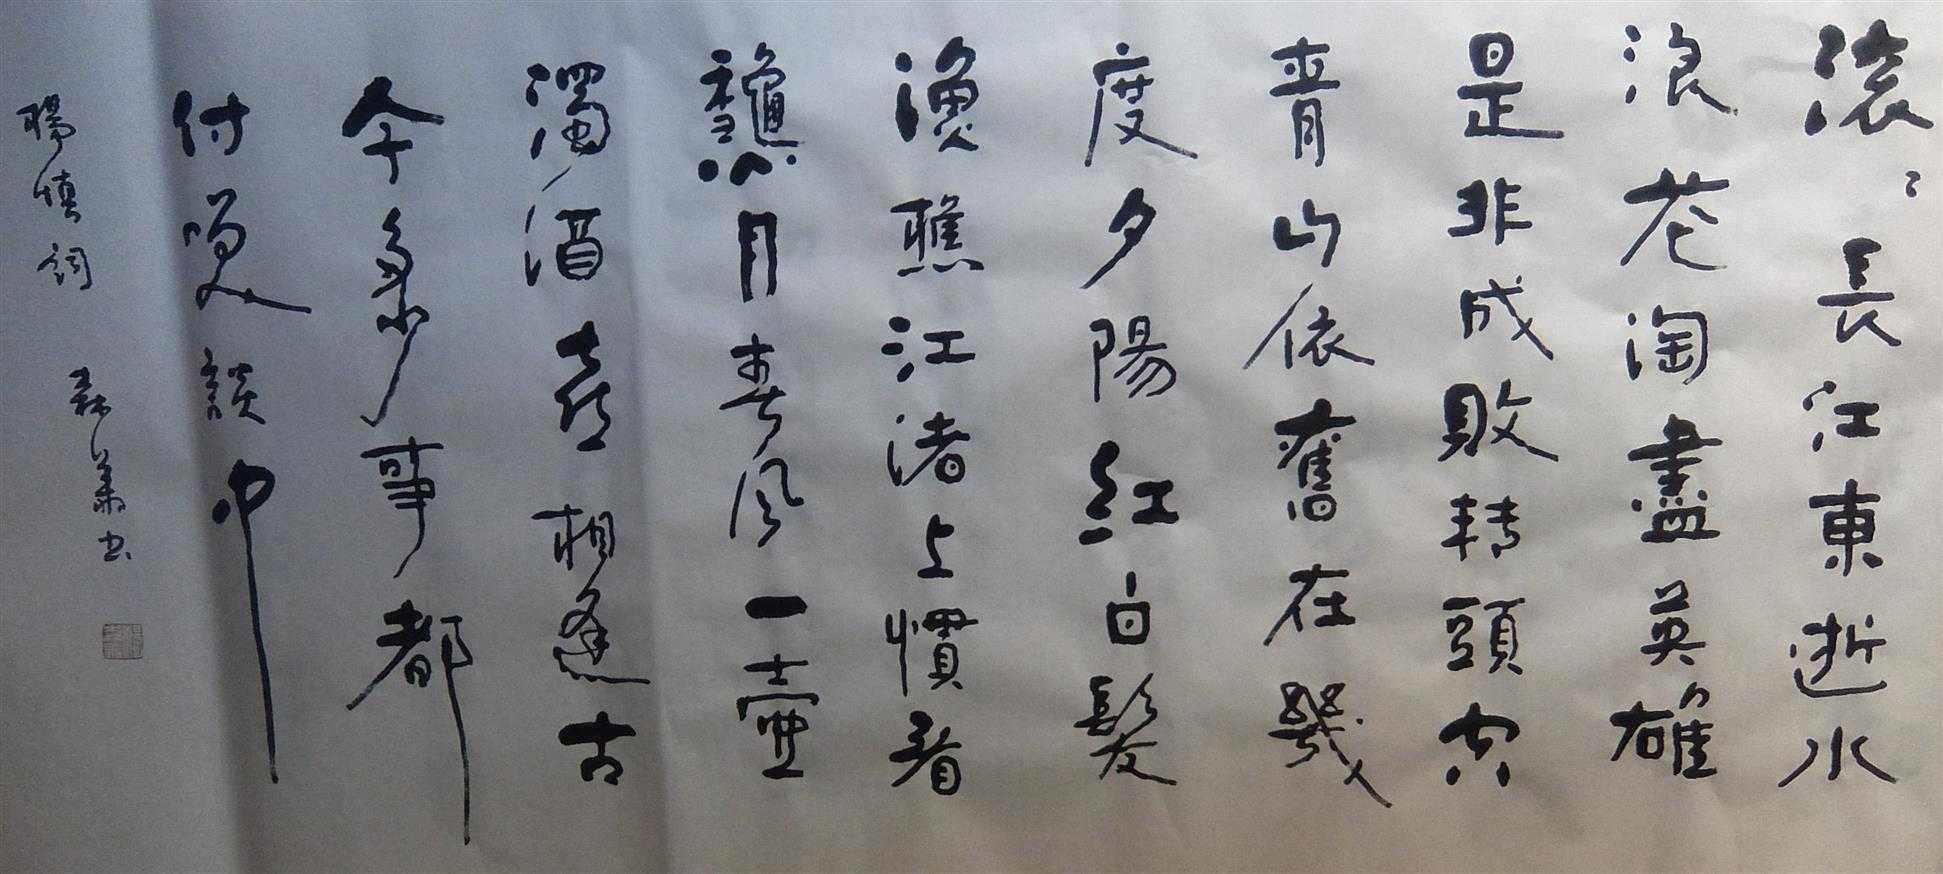 滚〻長江東逝水
浪花淘盡英雄
是非成敗转頭空
青山依舊在幾
度夕陽紅白髮
漁樵江渚上慣看
龝月春風一壺
濁酒喜相逢古
今多少事都
付笑談中
楊慎詞
書